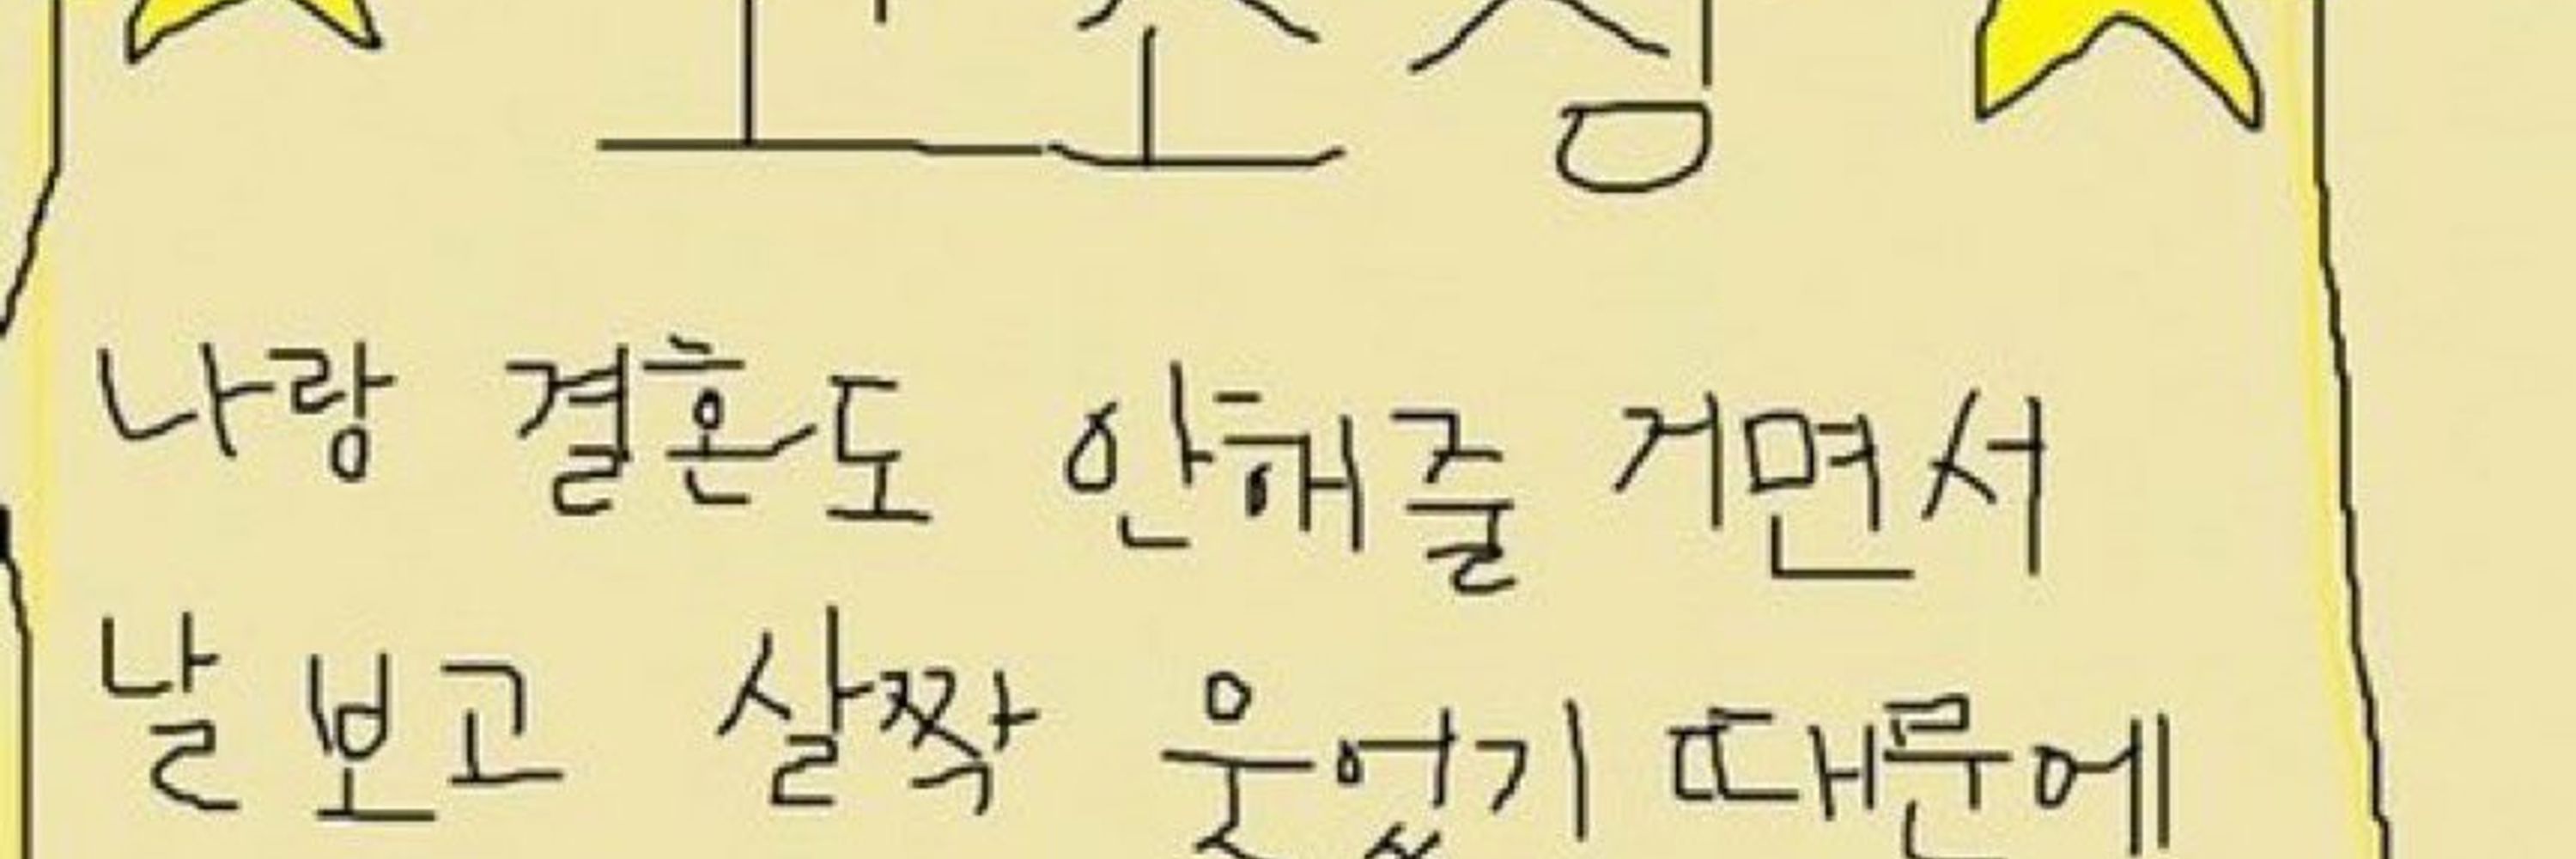 나랑 결혼도 안해줄 거면서
날 보고 살짝 웃었기 때문에